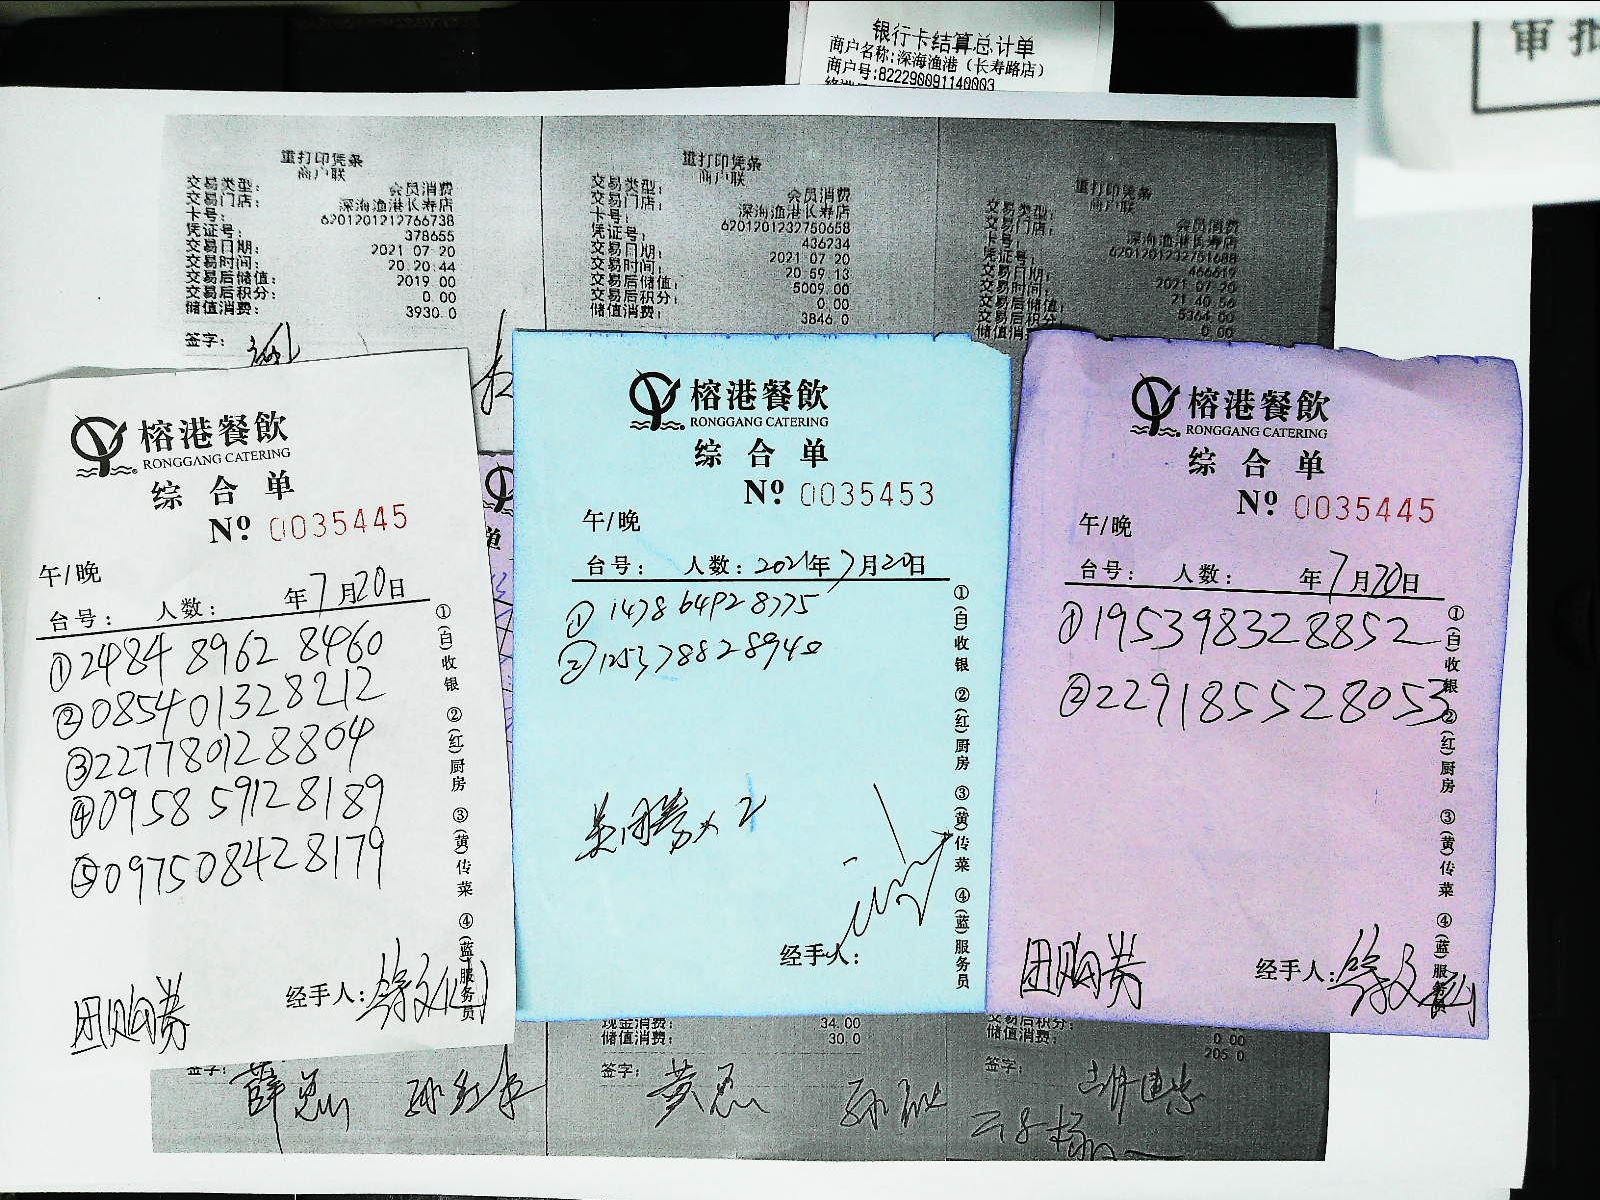 银行卡结算总计单
商户名称:深海渔港（长寿路店）
商户号:822290091140003
审批
重打印凭条
商户联
交易类型： 会员消费
交易门店： 深海渔港长寿店
卡号： 6201201212766738
凭证号： 378655
交易日期： 2021 07-20
交易时间： 20:20:44
交易后储值： 2019.00
交易后积分： 0.00
储值消费： 3930.0
签字：
重打印凭条
商户联
交易类型： 会员消费
交易门店： 深海渔港长寿店
卡号： 6201201232750658
凭证号： 436234
交易日期： 2021 07-20
交易时间： 20 59 13
交易后储值： 5009.00
交易后积分： 0.00
储值消费： 3846.0
重打印凭条
商户联
交易类型： 会员消费
交易门店： 深海渔港长寿店
卡号： 6201201232751688
凭证号： 466619
交易日期： 2021-07-20
交易时间： 21 40 56
交易后储值： 5364.00
交易后积分： 0.00
榕港餐飲
RONGGANG CATERING
综合单
Nº 0035445
午/晚
台号： 人数： 年7月20日
①2484 8962 8460
②085401328212
③227780128804
④0958 59128189
⑤097508428179
①(白)收银 ②(红)厨房 ③(黄)传菜 ④(蓝)服务员
团购券
经手人：
榕港餐飲
RONGGANG CATERING
综合单
Nº 0035453
午/晚
台号： 人数：2021年7月20日
① 1478 6492 8775
②125378828940
①(白)收银 ②(红)厨房 ③(黄)传菜 ④(蓝)服务员
经手人：
榕港餐飲
RONGGANG CATERING
综合单
Nº 0035445
午/晚
台号： 人数： 年7月20日
①195398328852
②229185528053
①(白)收银 ②(红)厨房 ③(黄)传菜 ④(蓝)服务员
团购券
经手人：
签字：
现金消费： 34.00
储值消费： 30.0
签字：
交易后积分： 0.00
储值消费： 205.0
签字：